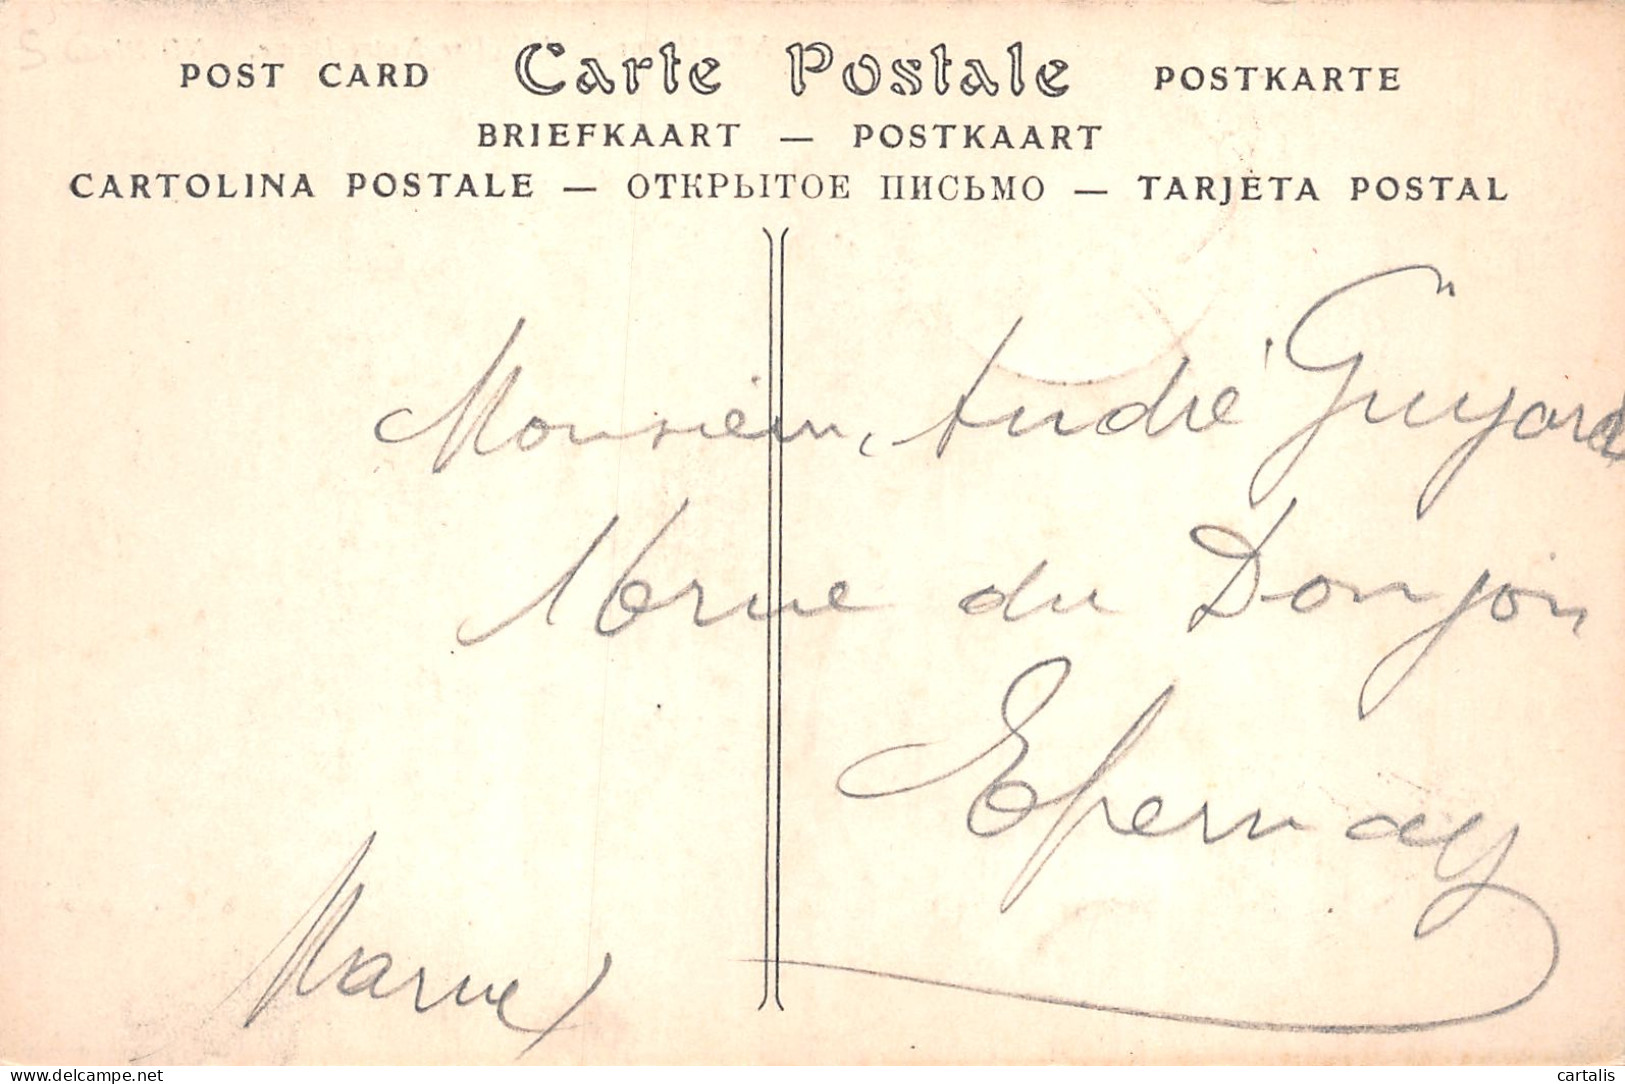 POST CARD Carte Postale POSTKARTE
BRIEFKAART — POSTKAART
CARTOLINA POSTALE — ОТКРЫТОЕ ПИСЬМО — TARJETA POSTAL
Monsieur André Guyard
16 rue du Donjon
Epernay
Marne
www.delcampe.net
cartalis